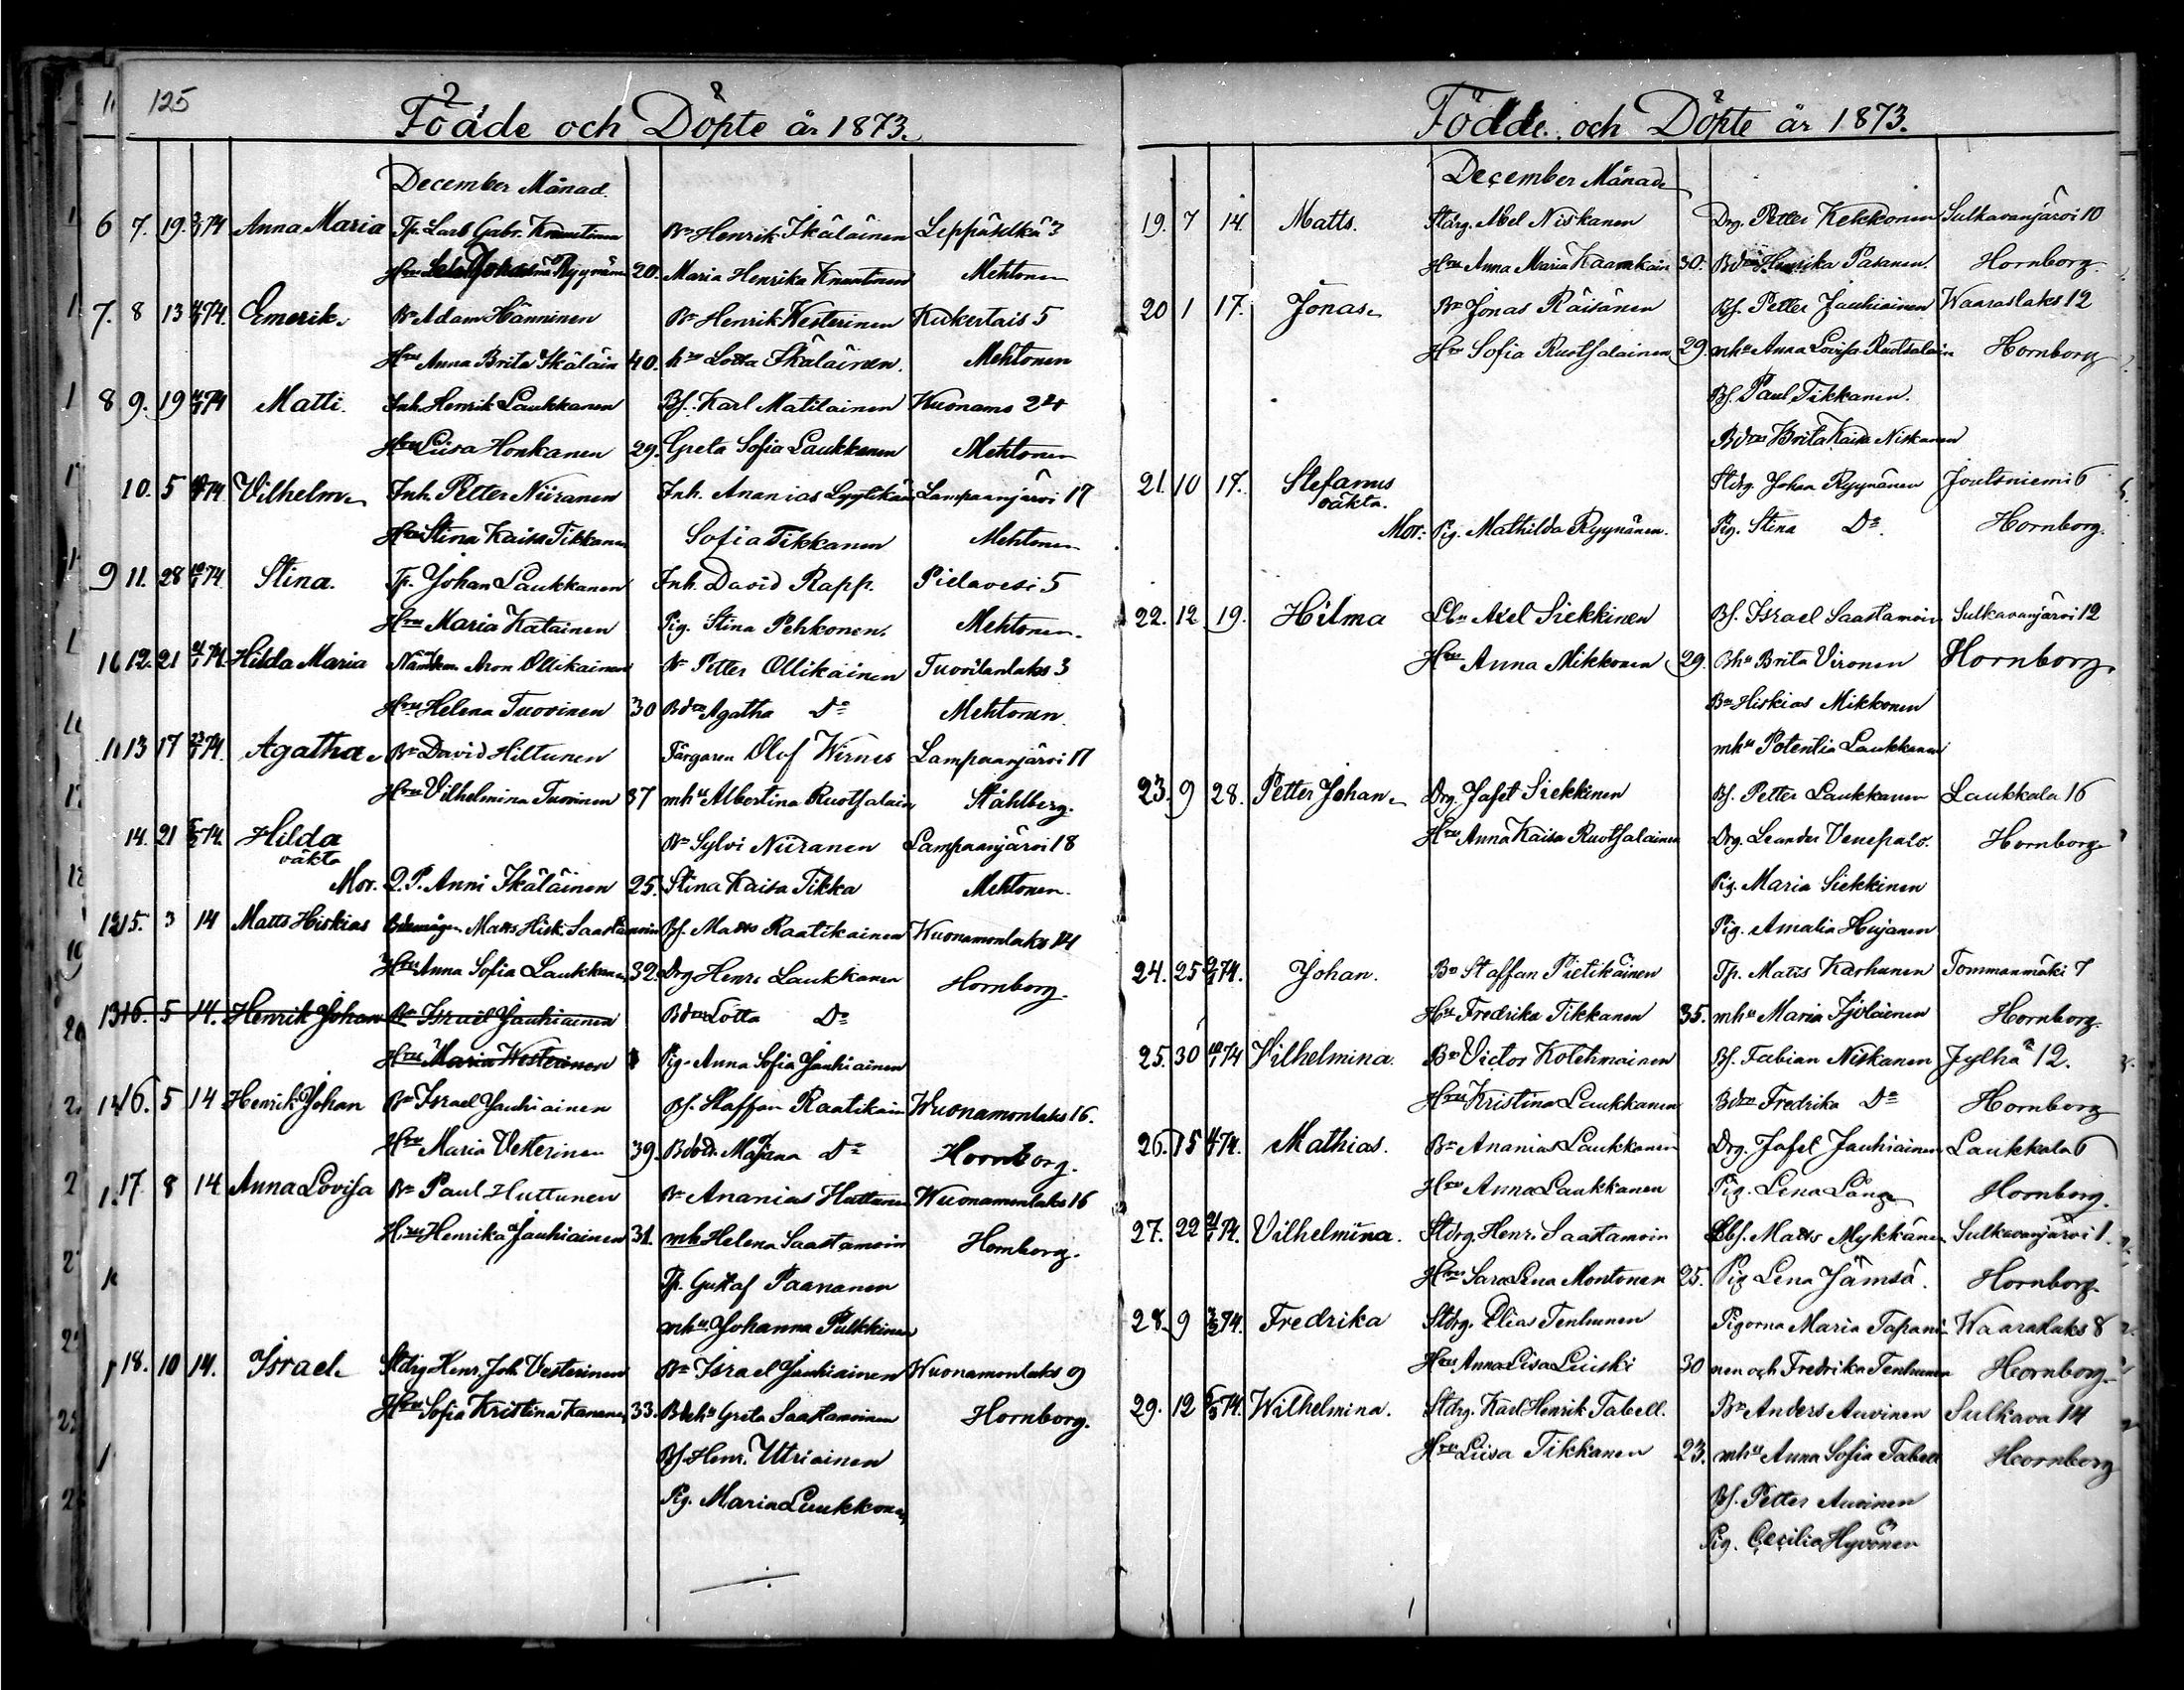 125
Födde och Döpte år 1873.
December Månad.
6 7. 19. 3/1 74 Anna Maria Tp. Lars Gabr. Knuutinen Bn Henrik Ikäläinen Leppäselkä 3
Hru Johanna Ryynänen 20. Maria Henrika Knuutinen Mehtonen
7. 8 13 74. Emerik. Bn Adam Hänninen Bn Henrik Westerinen Kukertais 5
Hru Anna Brita Ikäläin 40. hru Lotta Ikäläinen. Mehtonen
8 9. 19 74 Matti. Inh. Henrik Laukkanen Bf. Karl Matilainen Kuonams 24
Hru Liisa Honkanen 29. Greta Sofia Laukkanen Mehtonen
10. 5 74 Vilhelm. Inh. Petter Niiranen Inh. Ananias Lyytikäin Lampaanjärvi 17
Hru Stina Kaisa Tikkanen Sofia Tikkanen Mehtonen
9 11. 28 74. Stina. Tp. Johan Laukkanen Inh. David Rapp. Pielavesi 5
Hru Maria Katainen Pig. Stina Pehkonen. Mehtonen.
10 12. 21 74. Hilda Maria Nämdem. Aron Ollikainen Bn Petter Ollikainen Tuovilanlaks 3
Hru Helena Tuovinen 30 Bdru Agatha Do Mehtonen.
11 13 17 74. Agatha. Bn David Hiltunen Färgaren Olof Wirnes Lampaanjärvi 17
Hru Vilhelmina Tuovinen 37 mhu Albertina Ruotsalain Ståhlberg.
14. 21 74. Hilda Bn Sylvi Niiranen Lampaanjärvi 18
oäkta
Mor. Q.P. Anni Ikäläinen 25. Stina Kaisa Tikka Mehtonen.
12 15. 3 14 Matts Hiskias Bdemågen Matts Hisk. Saastamoin Bf. Matts Raatikainen Kuonamonlaks 14
Hru Anna Sofia Laukkanen 32. Drg Henr. Laukkanen Hornborg.
13 16. 5 14. Henrik Johan Bn Israel Jauhiainen Bdru Lotta Do
Hru Maria Westerinen Pig. Anna Sofia Jauhiainen
14 16. 5 14 Henrik Johan Bn Israel Jauhiainen Bf. Staffan Raatikain Wuonamonlaks 16.
Hru Maria Vesterinen 39. Majana Do Hornborg.
17 8 14 Anna Lovisa Bn Paul Huttunen Bn Ananias Huttunen Wuonamonlaks 16
Hru Henrika Jauhiainen 31. mh Helena Saastamoin Hornborg.
Tp. Gustaf Paananen
mhu Johanna Pulkkinen
18. 10 14. Israel. Stdrg Henr. Joh. Vesterinen Bn Israel Jauhiainen Wuonamonlaks 9
Hru Sofia Kristina Kananen 33. Greta Saastamoinen Hornborg.
Bf. Henr. Utriainen
Pig. Marina Luukkonen
Födde och Döpte år 1873.
December Månad
19. 7 14. Matts. Stdrg. Abel Niskanen Drg. Petter Kekkonen Sulkavanjärvi 10
Hru Anna Maria Kaarakain 30. Bdru Henrika Pasanen. Hornborg.
20 1 17. Jonas. Bn Jonas Räisänen Bf. Petter Jauhiainen Waaraslaks 12
Hru Sofia Ruotsalainen 29. mhu Anna Lovisa Ruotsalain Hornborg
Bf. Paul Tikkanen.
Bdru Brita Kaisa Niskanen
21. 10 17. Stefanus Stdrg. Johan Ryynänen Joutsniemi 6
oäkta.
Mor: Pig. Mathilda Ryynänen. Pig. Stina Do. Hornborg.
22. 12 19. Hilma Lbn Axel Siekkinen Bf. Israel Saastamoin Sulkavanjärvi 12
Hru Anna Mikkonen 29. Bhu Brita Vironen Hornborg
Bn Hiskias Mikkonen
mhu Potentia Laukkanen
23. 9 28. Petter Johan. Drg. Jafet Siekkinen Bf. Petter Laukkanen Laukkala 16
Hru Anna Kaisa Ruotsalainen Drg. Leander Venepalo. Hornborg
Pig. Maria Siekkinen
Pig. Amalia Hujanen
24. 25 74. Johan. Bn Staffan Pietikäinen Tp. Matts Karhunen Tommanmäki 7
Hru Fredrika Tikkanen 35. mhu Maria Tjoläinen Hornborg.
25. 30 74 Vilhelmina. Bn Victor Kolehmainen Bf. Fabian Niskanen Jylhä 12.
Hru Kristina Laukkanen Bdru Fredrika Do Hornborg
26. 15 74. Mathias. Bn Ananias Laukkanen Drg. Jafet Jauhiainen Laukkala 6
Hru Anna Laukkanen Pig. Lena Lång Hornborg.
27. 22 74. Vilhelmina. Stdrg. Henr. Saastamoin Matts Mykkänen Sulkavanjärvi 1.
Hru Sara Lena Montonen 25. Pig Lena Jämsä. Hornborg.
28. 9 3/2 74. Fredrika Stdrg. Elias Tenhunen Pigorna Maria Tapani- Waaraslaks 8
Hru Anna Lisa Luiski 30 nen och Fredrika Tenhunen Hornborg.
29. 12 74. Wilhelmina. Stdrg. Karl Henrik Tabell. Bn Anders Auvinen Sulkava 14
Hru Liisa Tikkanen 23. mhu Anna Sofia Tabell Hornborg
Bf. Petter Auvinen
Pig. Cecilia Hyvönen